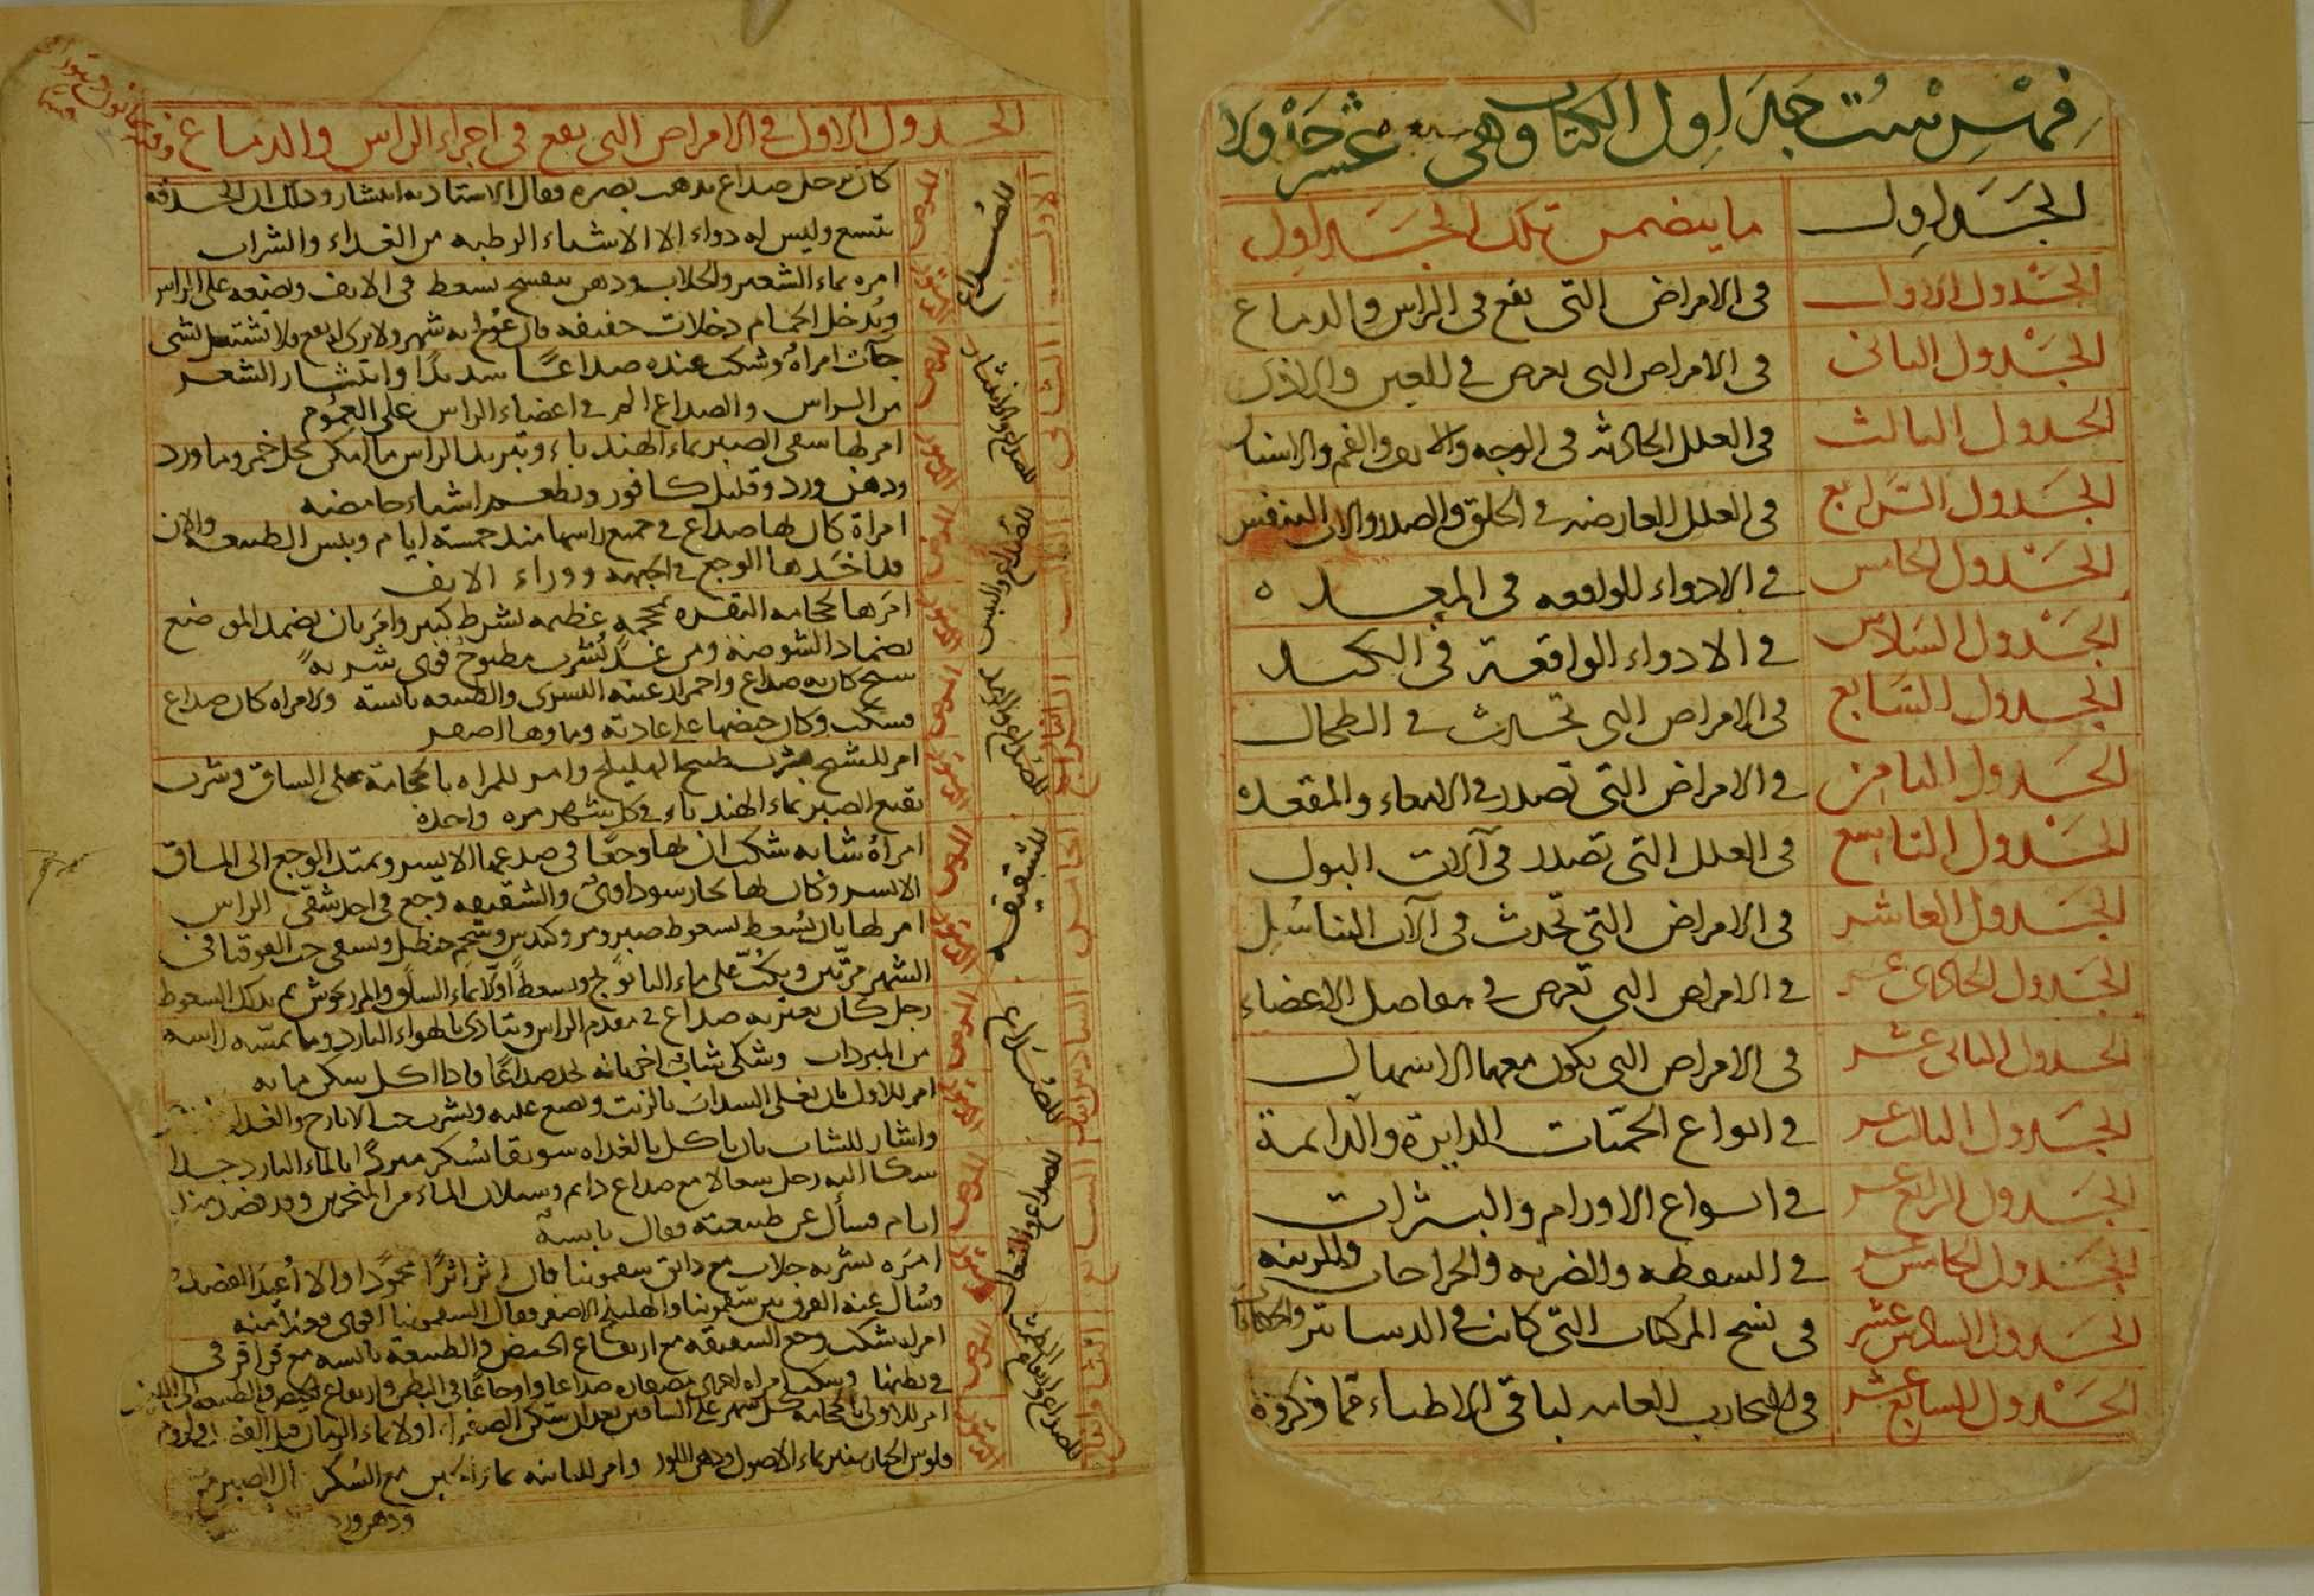 فهرست جداول الكتاب وهى سبعة عشر جدولا
الجداول ما يتضمن تلك الجداول
الجدول الاول فى الامراض التى تقع فى الراس والدماغ
الجدول الثانى فى الامراض التى تعرض فى العين والاذن
الجدول الثالث فى العلل الحادثه فى الوجه والانف والفم والاسنان
الجدول الرابع فى العلل العارضه فى الحلق والصدر والات التنفس
الجدول الخامس فى الادواء الواقعه فى المعده
الجدول السادس فى الادواء الواقعة فى الكبد
الجدول السابع فى الامراض التى تحدث فى الطحال
الجدول الثامن فى الامراض التى تصدر فى الامعاء والمقعده
الجدول التاسع فى العلل التى تصدر فى آلات البول
الجدول العاشر فى الامراض التى تحدث فى آلات التناسل
الجدول الحادى عشر فى الامراض التى تعرض فى مفاصل الاعضاء
الجدول الثانى عشر فى الامراض التى يكون معها الاسهال
الجدول الثالث عشر فى انواع الحمّيات الدايرة والدايمة
الجدول الرابع عشر فى انواع الاورام والبثرات
الجدول الخامس عشر فى السقطه والضربه والجراحات والزينه
الجدول السادس عشر فى نسخ المركبات التى كانت فى الدساتير والحكايات
الجدول السابع عشر فى التجارب العامه لباقى الاطباء مما ذكروه
الجدول الاول فى الامراض التى تقع فى اجزاء الراس والدماغ
الاول للصداع المرض كان برجل صداع يذهب بصره فقال الاستاذ به انتشار وذلك ان الحدقه
تتسع وليس له دواء الا الاشياء الرطبه من الغداء والشراب
التدبير امره بماء الشعير والجلاب ودهن بنفسج يسعط فى الانف ويضعه على الراس
ويدخل الحمام دخلات خفيفه فان عولج به شهر ولا يرى له نفع فلا تشتغل بشى
الثانى للصداع والانتشار المرض جآت امراة وشكت عنده صداعًا شديدًا وانتشار الشعر
من الراس والصداع الم فى اعضاء الراس على العموم
التدبير امر لها بسقى الصبر بماء الهندباء وتبريد الراس ما امكن بخل خمر وماورد
ودهن ورد وقليل كافور ويطعم اشياء حامضه
الثالث للصداع واليبس المرض امراة كان لها صداع فى جميع راسها منذ خمسة ايام ويبس الطبيعه والان
قد اخذها الوجع فى الجبهه ووراء الانف
التدبير امرها بحجامه النقره بمحجمه عظيمه بشرط كبير وامر بان يضمد الموضع
بضماد الشوصه ومن غدٍ تشرب مطبوخ قوى شربه
الرابع للصداع والرمد المرض شيخ كان به صداع واحمرار عينه اليسرى والطبيعه يابسه ولامراه كان صداع
فسكت وكان حيضها على عادته
التدبير امر للشيخ بشرب طبيخ الهليلج وامر للمراه بالحجامة على الساق وشرب
نقيع الصبر بماء الهندباء فى كل شهر مره واحده
الخامس للشقيقه المرض امراة شابه شكت ان لها وجعًا فى صدغها الايسر ويمتد الوجع الى الساق
الايسر وكان لها بخار سوداوى والشقيقه وجع فى احد شقى الراس
التدبير امر لها بان تسعط بسعوط صبر ومر وكندس وشحم حنظل وتسقى حب القوقايا فى
الشهر مرّتين وتكبّ على ماء البابونج وتسعط اولًا بماء السلق والمرزنجوش ثم بذلك السعوط
السادس للصداع المرض رجل كان يعتريه صداع فى مقدم الراس ويتاذى بالهواء البارد وما تمسّه راسه
من المبردات وشكى شاب اخر بانه يجد صداعًا واذا اكل سكن ما به
التدبير امر للاول بان يغلى السداب بالزيت ويضع عليه ويشرب حب الايارج والغدا
واشار للشاب بان ياكل بالغداه سويقا بسكر مبردًا بالماء البارد جدا
السابع للصداع والسعال المرض شكا اليه رجل سعالا مع صداع دائم وسيلان الماء من المنخرين وقد فصد منذ
ايام فسأل عن طبيعته فقال يابسة
التدبير امره بشربه جلاب مع دانق سقمونيا فان اثر اثرًا محمودًا والا اُعيد الفصد
وسُال عنه الفرق بين سقمونيا واهليلج الاصفر فقال السقمونيا اقوى
الثامن المرض امراه شكت وجع الشقيقه مع ارتفاع الحيض والطبيعة يابسه مع قراقر فى
فى بطنها وشكت امراه اخرى
التدبير امر للاولى بالحجامه كل شهر على الساقين بعد ان تسكن الصفرا اولا بماء الرمان قبل الفصد
فلوس الخيارشنبر بماء الاصول ودهن اللوز وامر للثانيه مع السكر
ودهن ورد